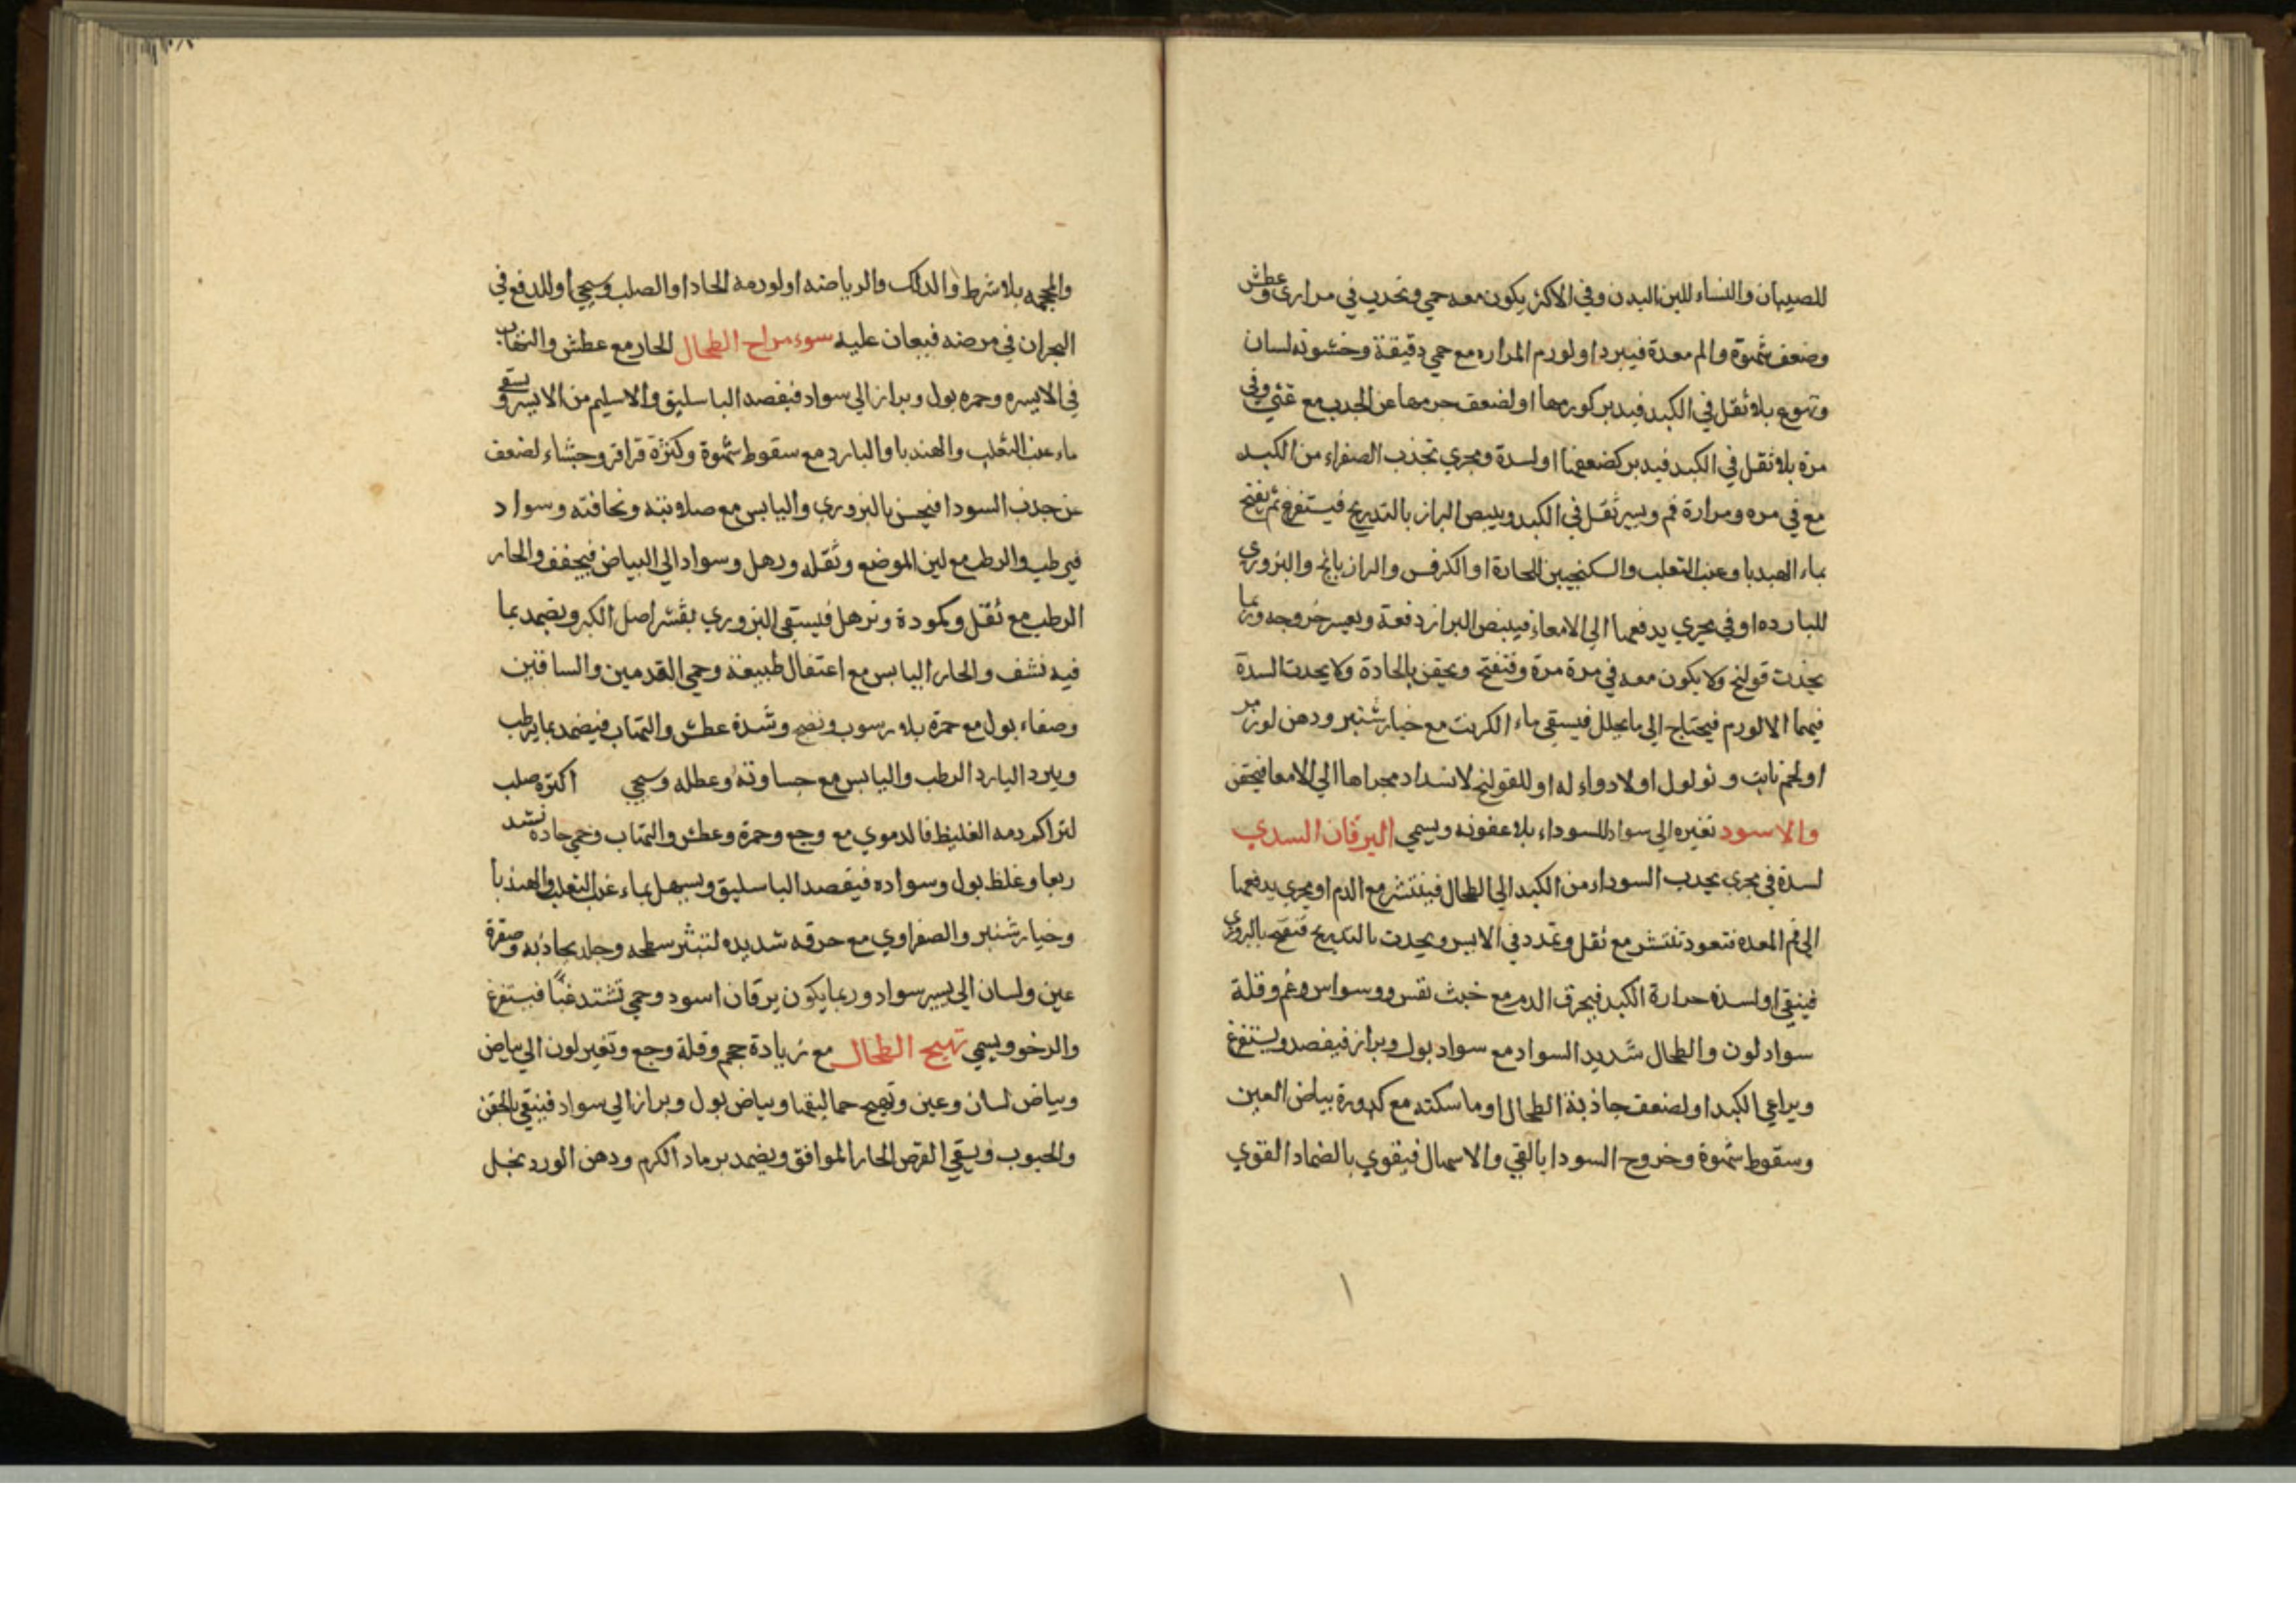 للصبيان والنساء للين البدن وفي الاكثر يكون معه حمي وتحدب في مراري وعطش
وضعف شهوة والم معدة فيبرد او لورم المراره مع حمي دقيقة وخشونه لسان
وتهوع بلا ثقل في الكبد فيدبر كورمها او لضعف جرمها عن الجدب مع غثي وقي
مرة بلا ثقل في الكبد فيدبر كضعفها او لسدة ومجري تجذب الصفراء من الكبد
مع في مره ومرارة فم ويسير ثقل في الكبد ويبيض البراز بالتدريج فيستفرغ ثم يفتح
بماء الهندبا وعنب الثعلب والسكنجبين للحارة او الكرفس والرازيانج والبزوري
للبارده او في مجري يدفعها الي الامعاء فيبيض البراز دفعة ويعسر خروجه وربما
يحدث قولنج ولا يكون معه في مرة مرة وفتفتح ويحقن بالحادة ولا يحدث السدة
فيهما الا لورم فيحتاج الي ما يحلل فيسقي ماء الكرنب مع خيار شنبر ودهن لوز مر
او لحم نابت و ثولول او لا دواء له او للقولنج لانسداد مجراها الي الامعا فيحقن
والاسود تغيره الي سواد للسوداء بلا عفونه ويسمي اليرقان السدي
لسدة في مجري يجدب السوداء من الكبد الي الطحال فينتشر مع الدم او مجري يدفعها
الي فم المعده فتعود تنتشر مع ثقل وتمدد في الايسر ويحدث بالتدريج فتفتح بالبزوري
فينقي او لسدة حرارة الكبد فيحرق الدم مع خبث نفس ووسواس وغم وقلة
سواد لون والطحال شديد السواد مع سواد بول وبراز فيفصد ويستفرغ
ويراعي الكبد او لضعف جاذبة الطحال او ماسكته مع كدورة بياض العين
وسقوط شهوة وخروج السودا بالقي والاسهال فيقوي بالضماد القوي
والمحجمه بلا شرط والدلك والرياضه او لورمه الحاد او الصلب وسيجي او للدفع في
البحران في مرضه فيعان عليه سوء مزاج الطحال الحار مع عطش والتهاب
في الايسره وحمره بول وبراز الي سواد فيفصد الباسليق والاسليم من الايسر ويسقي
ماء عنب الثعلب والهندبا والبارد مع سقوط شهوة وكثرة قراقر وجشاء لضعف
عن جذب السودا فيسخن بالبزوري واليابس مع صلابته ونحافته وسواد
فيرطب والرطب مع لين الموضع وثقله ورهل وسواد الي البياض فيجفف والحار
الرطب مع ثقل وكمودة وترهل فيسقي البزوري بقشر اصل الكبر ويضمد بما
فيه نشف والحار اليابس مع اعتقال طبيعة وحمي القدمين والساقين
وصفاء بول مع حمرة بلا رسوب ونضج وشدة عطش والتهاب فيضمد بما يرطب
ويبرد البارد الرطب واليابس مع جساوته وعطله وسيجي اكثره صلب
لتراكم دمه الغليظ فالدموي مع وجع وحمرة وعطش والتهاب وحمي حاده تشتد
ربعا وغلظ بول وسواده فيفصد الباسليق ويسهل بماء عنب الثعلب والهندبا
وخيار شنبر والصفراوي مع حرقه شديده لتبثر سطحه وجلد يحاذبه وصفرة
عين ولسان الي يسير سواد وربما يكون يرقان اسود وحمي تشتد غبا فيستفرغ
والرخو ويسمي تهيج الطحال مع زيادة حجم وقلة وجع وتغير لون الي بياض
وبياض لسان وعين وتهيج حمالبيقها وبياض بول وبراز الي سواد فينقي بالحقن
والحبوب ويسقي القرص الحار الموافق ويضمد برماد الكرم ودهن الورد بخل